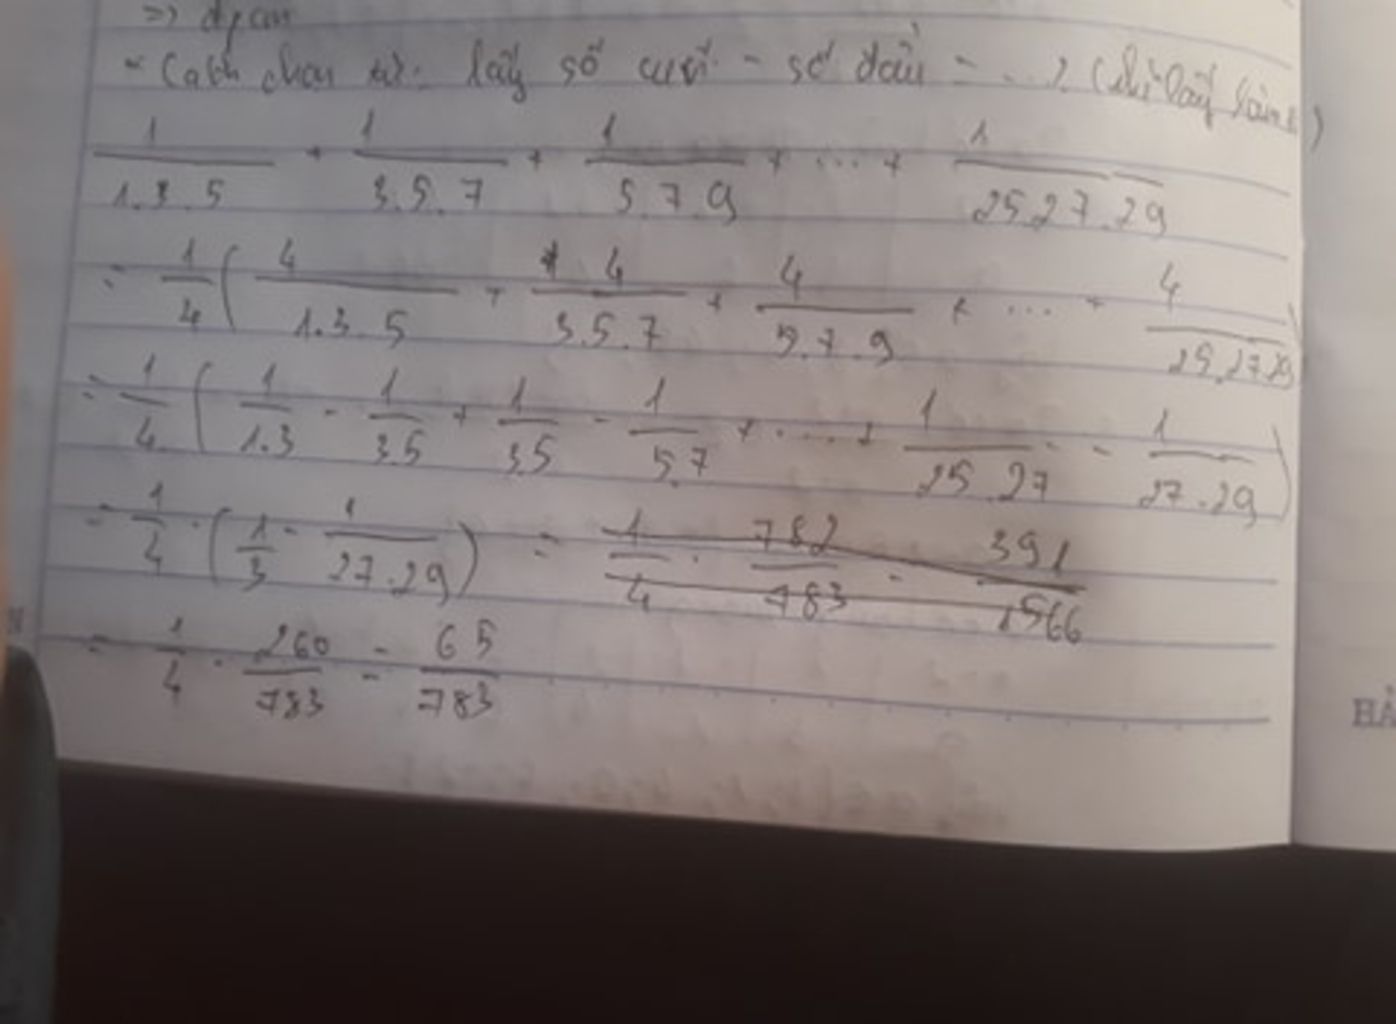 => đpcm
- Cách chọn tử: lấy số cuối - số đầu = ...
1/1.3.5 + 1/3.5.7 + 1/5.7.9 + ... + 1/25.27.29
= 1/4 ( 4/1.3.5 + 4/3.5.7 + 4/5.7.9 + ... + 4/25.27.29 )
= 1/4 ( 1/1.3 - 1/3.5 + 1/3.5 - 1/5.7 + .... + 1/25.27 - 1/27.29 )
= 1/4 . ( 1/3 - 1/27.29 ) = 1/4 . 782/783 = 391/1566
= 1/4 . 260/783 = 65/783
HẢ